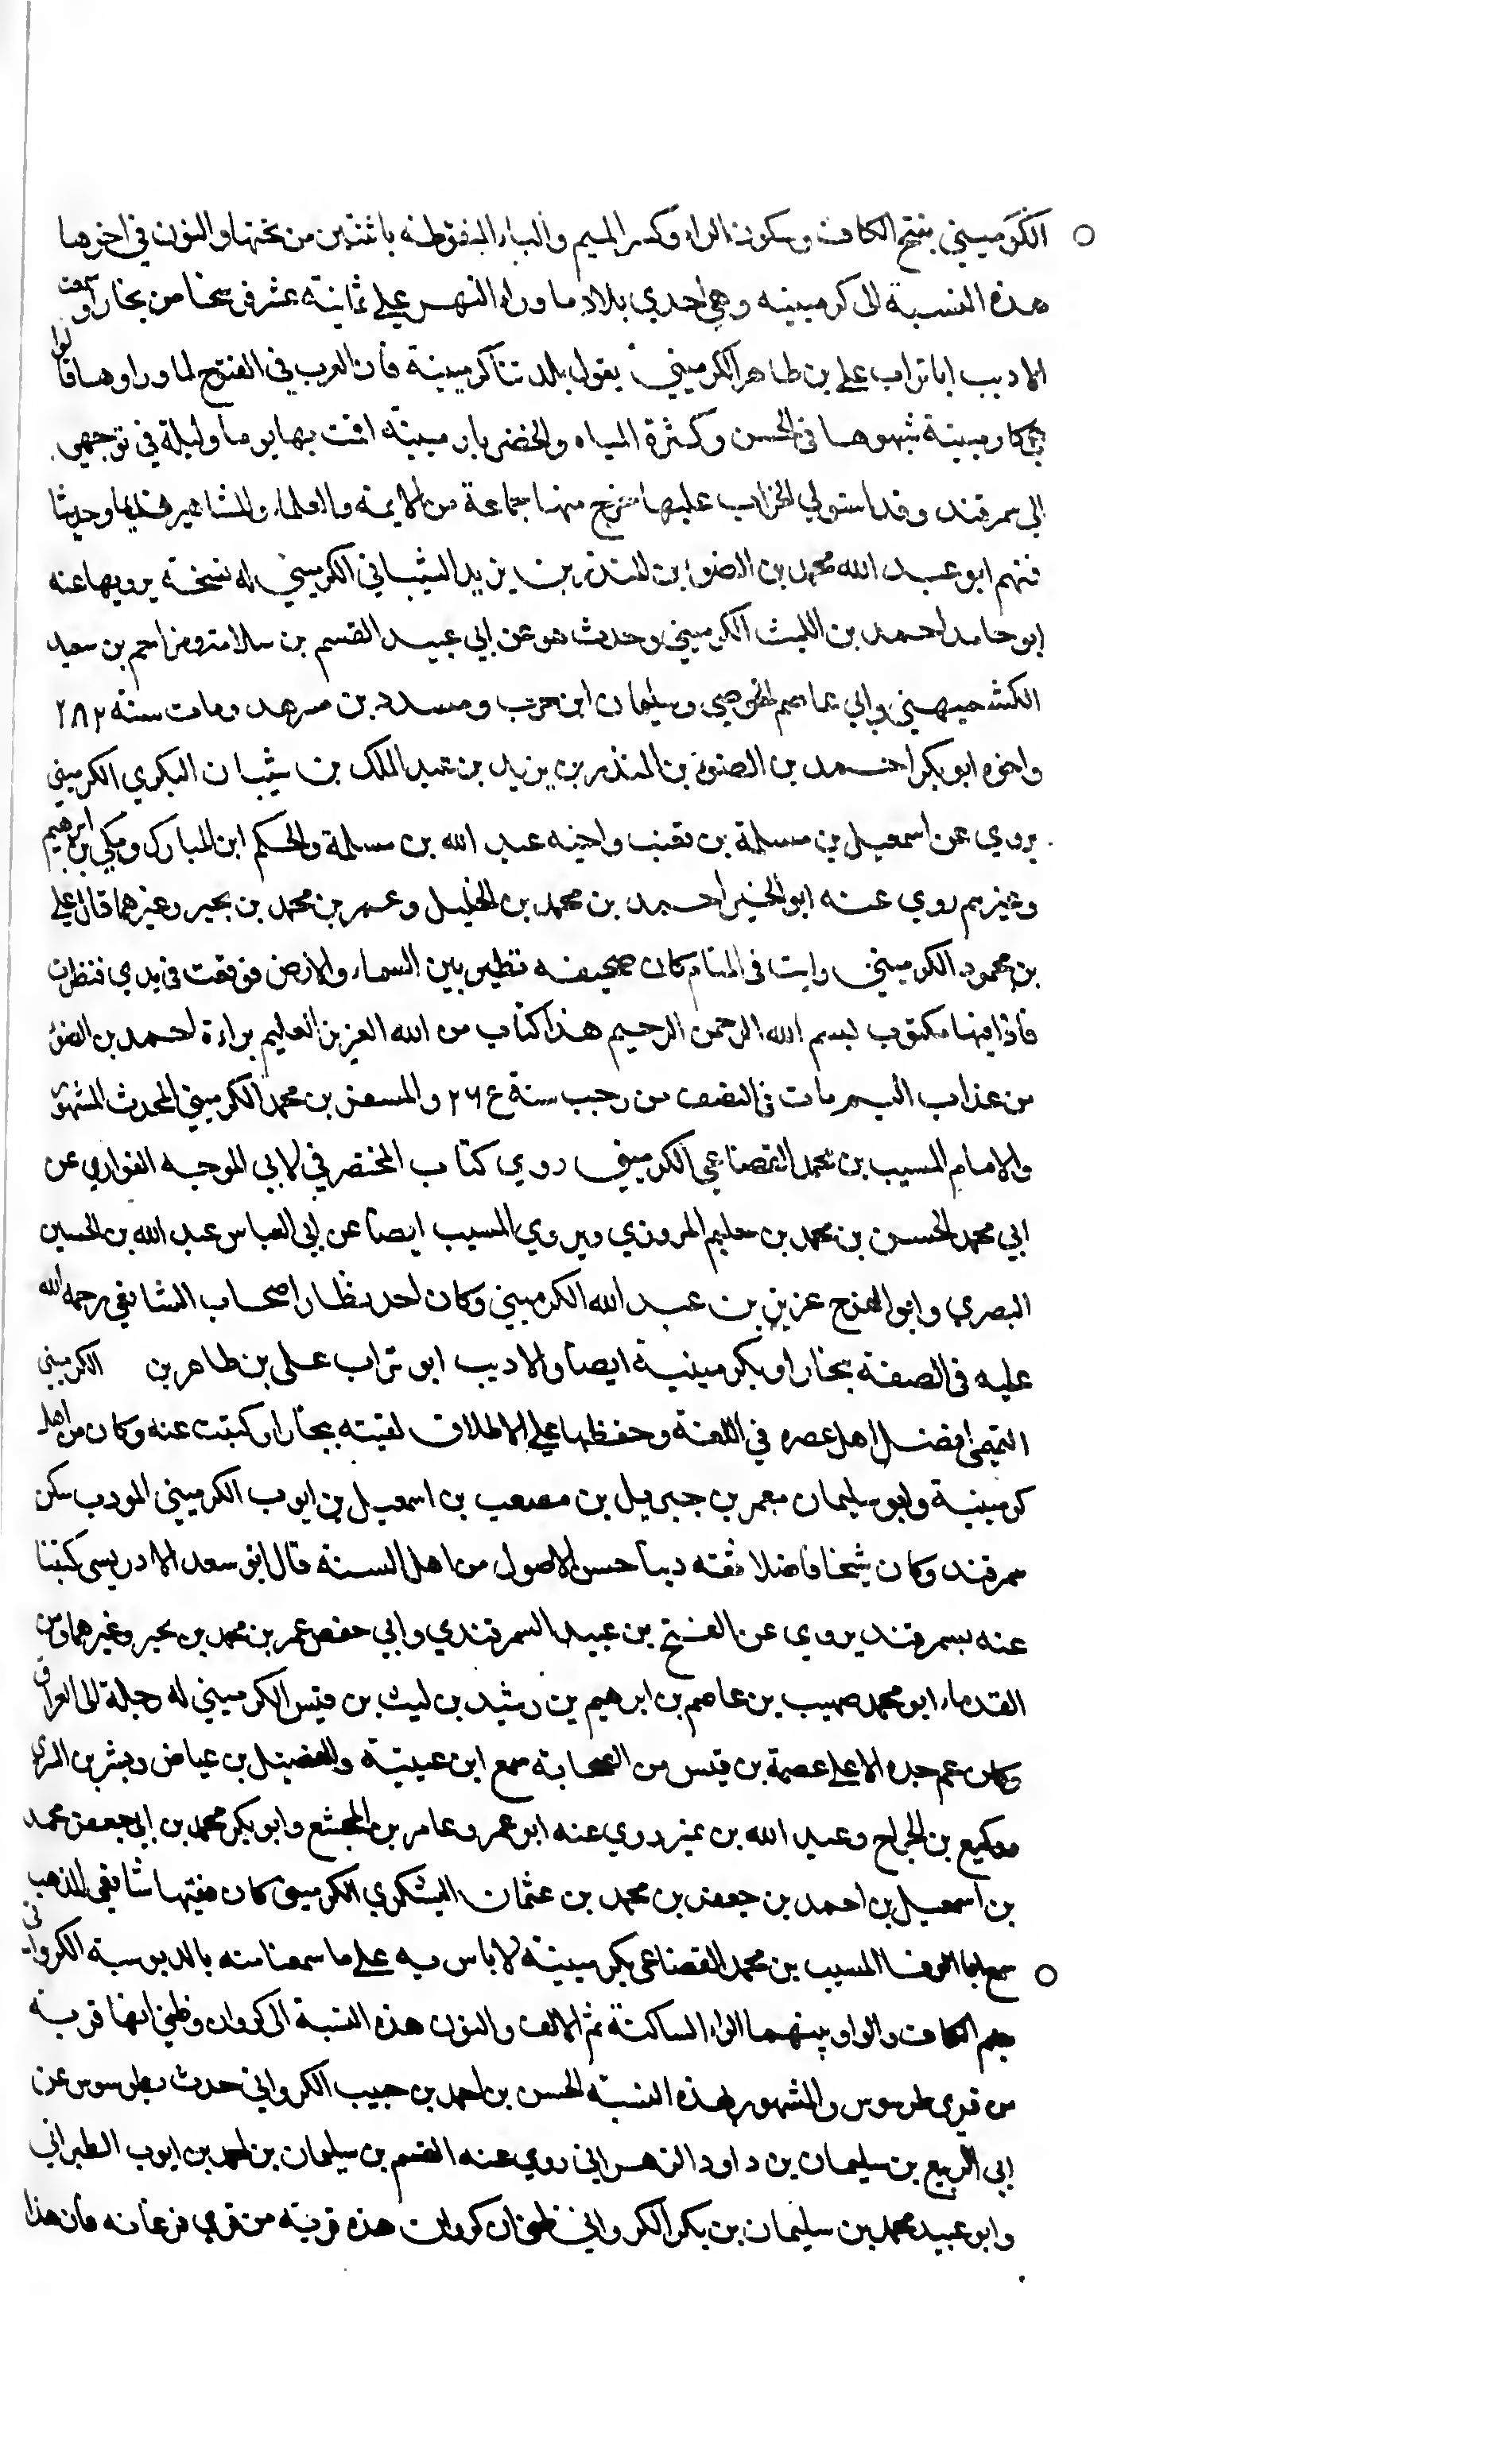 الكرميني بفتح الكاف وسكون الراء وكسر الميم والياء المنقوطة باثنتين من تحتها والنون في اخرها
هذه النسبة الى كرمينية وهي احدى بلاد ما وراء النهر على ثمانية عشر فرسخا من بخارا وسمعت
الاديب ابا تراب علي بن طاهر الكرميني يقول بلدتنا كرمينية فان العرب في الفتوح لما وراوها قالوا
كارمينية شبهوها في الحسن وكثرة المياه والخضر بارمينية اقمت بها يوما وليلة في توجهي
الى سمرقند وقد استولى الخراب عليها خرج منها جماعة من الايمة والعلماء والمشاهير قديما وحديثا
فمنهم ابو عبد الله محمد بن الضوء بن المنذر بن يزيد الشيباني الكرميني له نسخة يرويها عنه
ابو حامد احمد بن الليث الكرميني وحدث هو عن ابي عبيد القسم بن سلام ومزاحم بن سعيد
الكشميهني وابي عاصم الحوضي وسليمان ابن حرب ومسدد بن مسرهد ومات سنة ٢٨٢
واخوه ابو بكر احمد بن الضوء بن المنذر بن يزيد بن عبد الملك بن شيبان البكري الكرميني
يروي عن اسمعيل بن مسلمة بن قعنب واخيه عبد الله بن مسلمة والحكم ابن المبارك ومكي بن ابرهيم
وغيرهم روى عنه ابو الخير احمد بن محمد بن الخليل وعمر بن محمد بن بجير وغيرهما قال علي
بن محمود الكرميني رايت في المنام كان صحيفة تطير بين السماء والارض فوقعت في يدي فنظرت
فاذا فيها مكتوب بسم الله الرحمن الرحيم هذا كتاب من الله العزيز العليم براءة لاحمد بن الضوء
من عذاب اليم مات في النصف من رجب سنة ٢٦٤ والمسعر بن محمد الكرميني المحدث المشهور
والامام المسيب بن محمد القضاعي الكرميني روى كتاب المختصر في لابي الموجه الفزاري عن
ابي محمد الحسن بن محمد بن حليم المروزي ويروي المسيب ايضا عن ابي العباس عبد الله بن الحسين
البصري وابو الفرج عزيز بن عبد الله الكرميني وكان احد نظار اصحاب الشافعي رحمة الله
عليه في الصفة بخارا وبكرمينية ايضا والاديب ابو تراب علي بن طاهر بن الكرميني
التميمي افضل اهل عصره في اللغة وحفظها على الاطلاق لقيته ببخارا وكتبت عنه وكان من اهل
كرمينية وابو سليمان معمر بن جبريل بن مصعب بن اسمعيل بن ايوب الكرميني المودب سكن
سمرقند وكان شيخا فاضلا ثقة دينا حسن الاصول من اهل السنة قال ابو سعد الادريسي كتبنا
عنه بسمرقند يروي عن الفتح بن عبيد السمرقندي وابي حفص عمر بن محمد بن بجير وغيرهما ومن
القدماء ابو محمد صهيب بن عاصم بن ابرهيم بن رشيد بن ليث بن قيس الكرميني له رحلة الى العراق
وكان عم جده الاعلى عصمة بن قيس من الصحابة سمع ابن عيينة والفضيل بن عياض وبشر بن السري
ووكيع بن الجراح وعبد الله بن نمير روى عنه ابو عمرو عامر بن المجشع وابو بكر محمد بن ابي جعفر محمد
بن اسمعيل بن احمد بن جعفر بن محمد بن عثمان اليشكري الكرميني كان فقيها شافعي المذهب
سمع ابا المسيب بن محمد القضاعي بكرمينية لا باس به على ما سمعنا منه بالدبوسية الكرواني
بضم الكاف والواو بينهما الراء الساكنة ثم الالف والنون هذه النسبة الى كروان وظني انها قرية
من قرى طرسوس والمشهور بهذه النسبة الحسن بن احمد بن حبيب الكرواني حدث بطرسوس عن
ابي الربيع بن سليمان بن داود الزهراني روى عنه القسم بن سليمان بن احمد بن ايوب الطبراني
وابو عبيد محمد بن سليمان بن بكر الكرواني ظني ان كروان هذه قرية من قرى فرغانة فان هذا